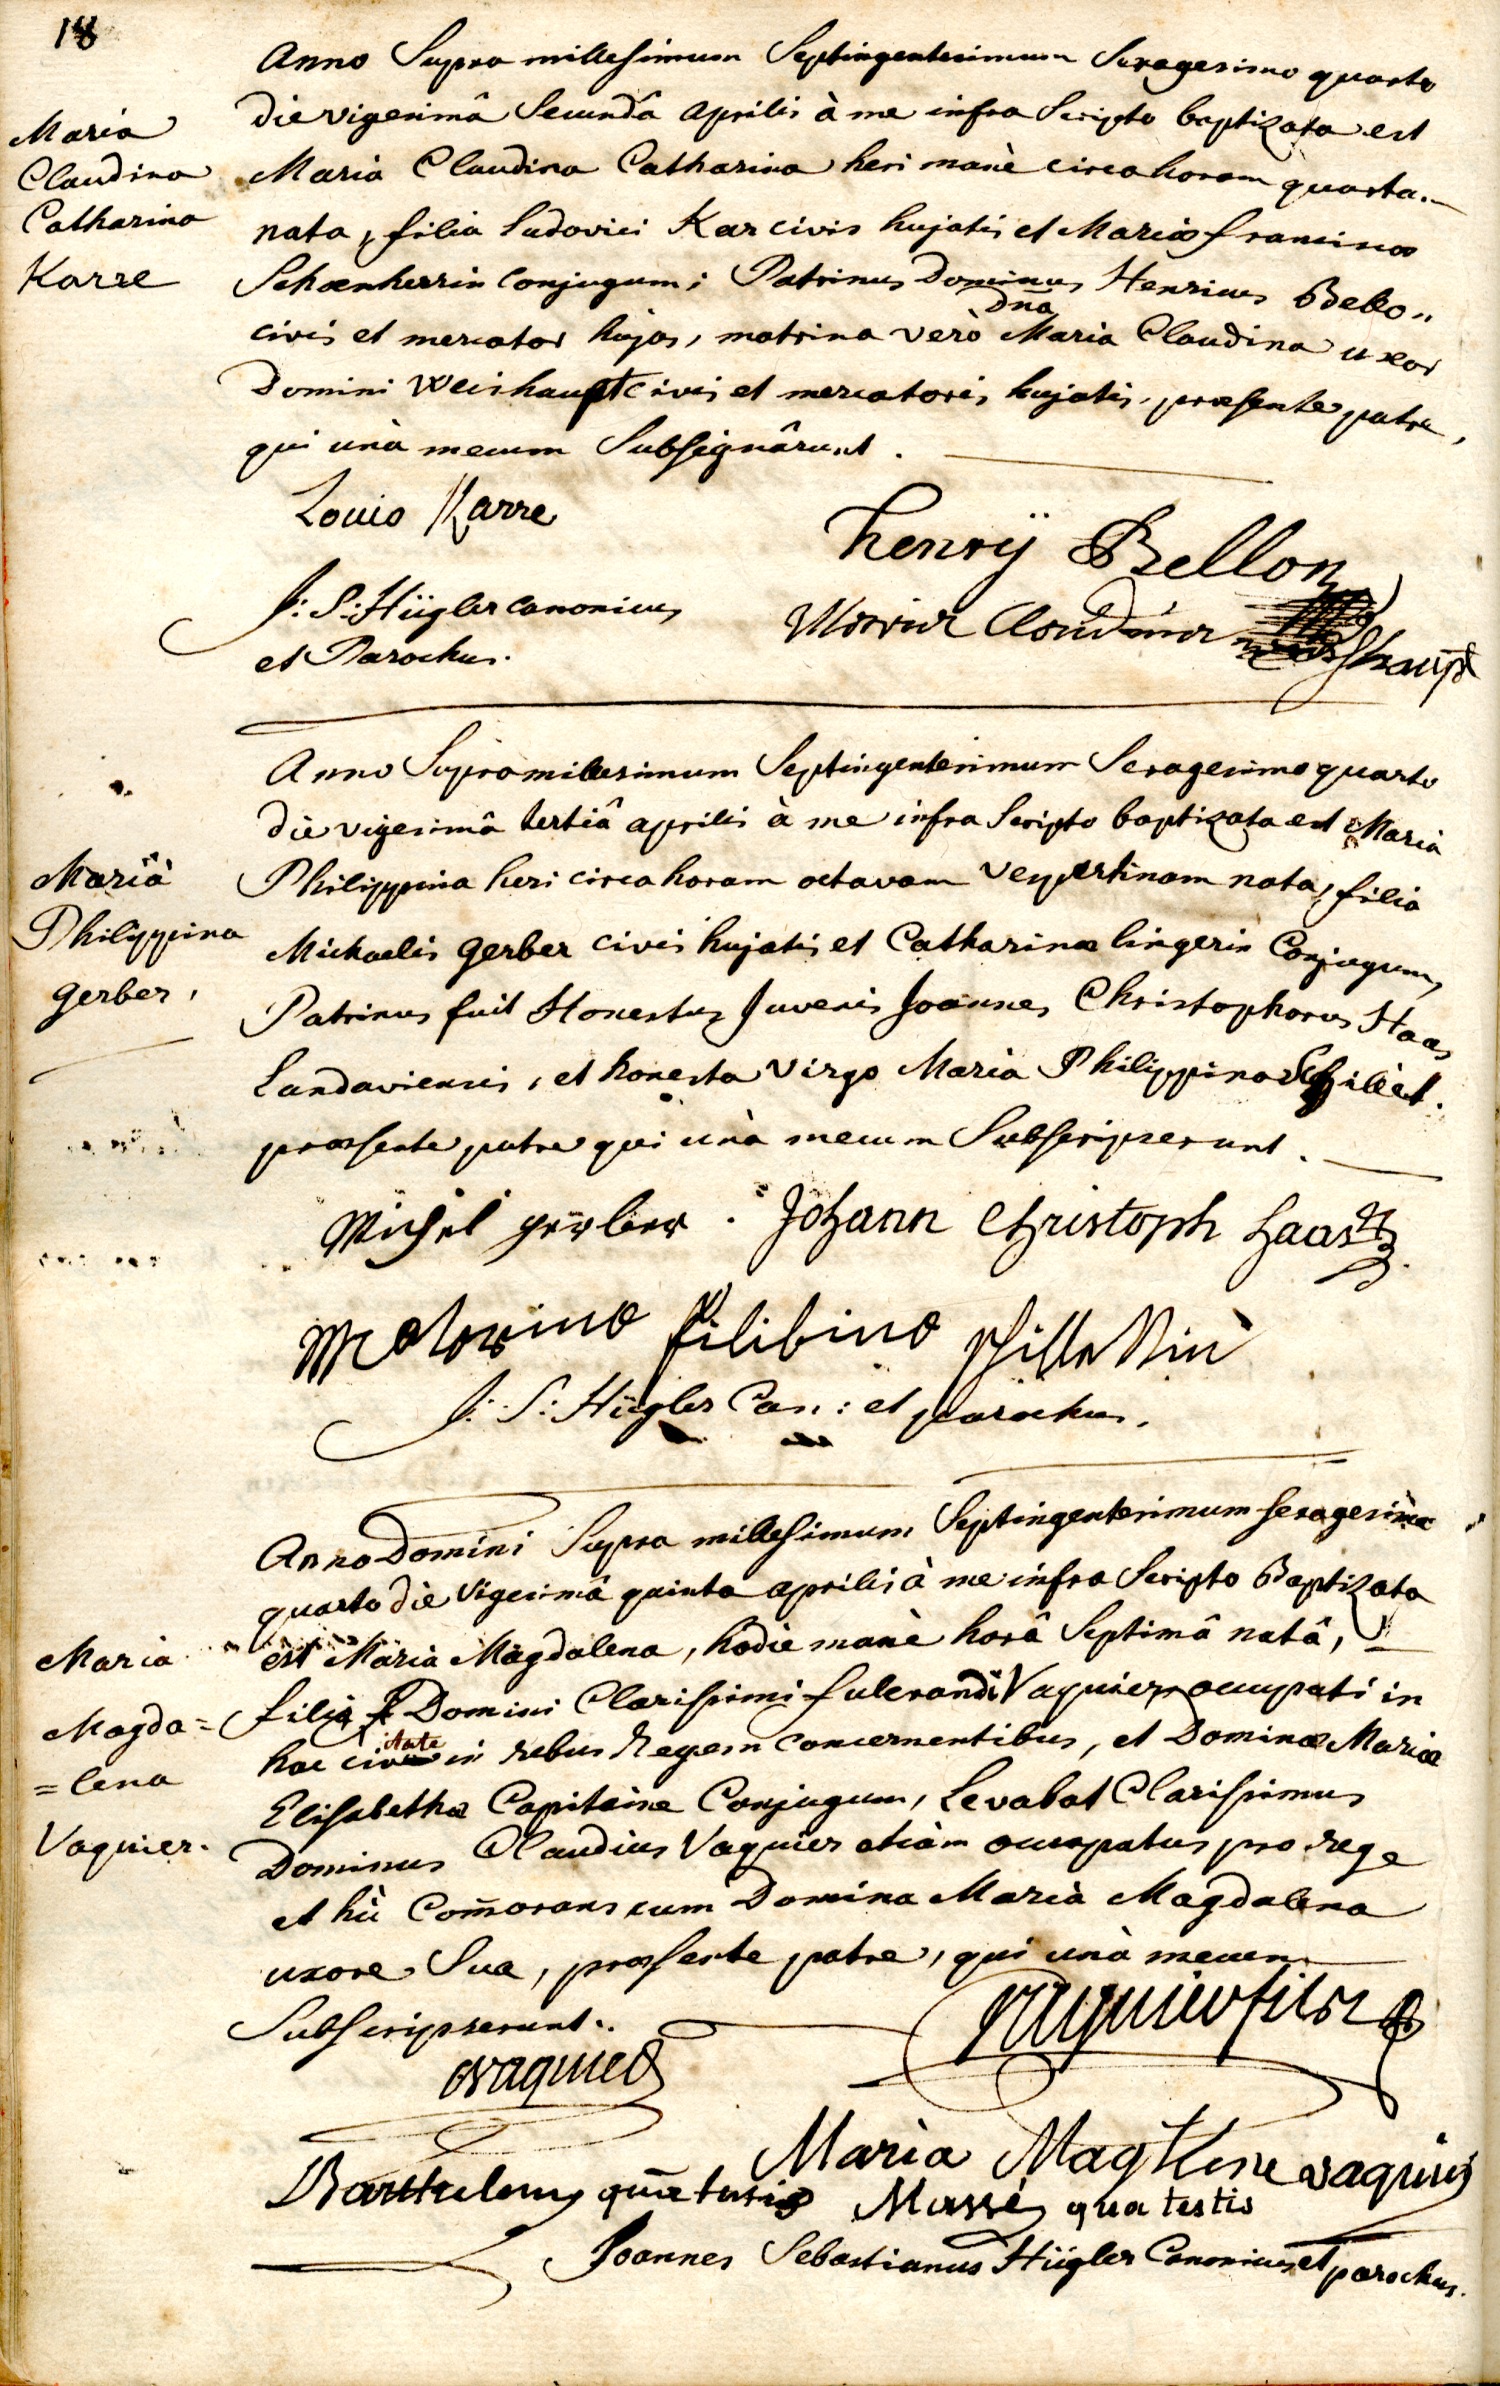 18
Anno Supra millesimum Septingentesimum Sexagesimo quarto
die vigesimâ Secundâ aprilis à me infra Scripto baptizata est
Maria Claudina Catharina heri manè circa horam quarta.
nata, filia Ludovici Kar civis hujatis et Mariæ franciscæ
Schœnherrin conjugum; Patrinus Dominus Henricus Bello„
civis et mercator hujas, matrina verò Dna Maria Claudina uxor
Domini Weishaupt civis et mercatoris hujatis, præsente patre,
qui unà mecum Subsignârunt.
Maria
Claudina
Catharina
Karre
Louis Karre
henrÿ Bellon
J: S: Hügler canonicus
et Parochus.
Claudina
Anno Supra millesimum Septingentesimum Sexagesimo quarto
die vigesimâ tertiâ aprilis à me infra Scripto baptizata est Maria
Philippina heri circa horam octavam vespertinam nata, filia
Michaelis gerber civis hujatis et Catharinæ lingerin Conjugum,
Patrinus fuit Honestus Juvenis Joannes Christophorus Haas
Landaviensis, et honesta Virgo Maria Philippina
præsente patre qui unà mecum Subscripserunt.
Maria
Philippina
gerber,
Michel gerber. Johann Christoph haas
filibina
J: S: Hügler Can: et parochus.
Anno Domini Supra millesimum Septingentesimum sexagesimo
quarto die Vigesimâ quinta aprilis à me infra Scripto Baptizata
est Maria Magdalena, hodie manè horâ Septimâ natâ,
filia Domini Clarissimi fulcrandi Vaquier occupati in
hac civitate in rebus Regem concernentibus, et Dominæ Mariæ
Elisabethæ Capitaine Conjugum, Levabat Clarissimus
Dominus Claudius Vaquier etiàm occupatus pro rege
et hic Com̄orans cum Domina Maria Magdalena
uxore Sua, præsente patre, qui unà mecum
Subscripserunt.
Maria
Magda=
=lena
Vaquier.
vaquier fils
vaquier
Maria Vaquier
qua testis Massé qua testis
Joannes Sebastianus Hügler Canonicus et parochus.